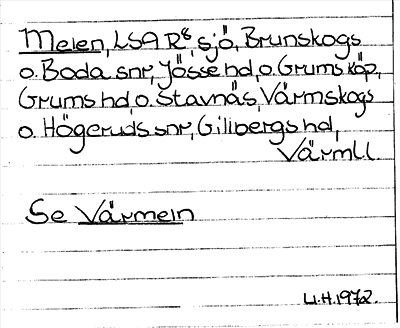 Meien, LSA R⁸, sjö, Brunskogs
o. Boda snr, Jösse hd, o. Grums köp,
Grums hd, o. Stavnäs, Värmskogs
o. Högeruds snr, Gillbergs hd,
Värml.
Se Värmeln
L.H. 1972.